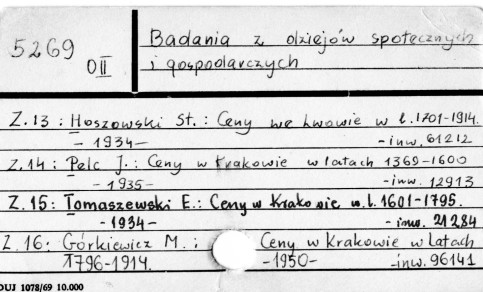 5269
OII
Badania z dziejów społecznych
i gospodarczych
Z.13 : Hoszowski St. : Ceny we Lwowie w l. 1701-1914.
- 1934 - - inw. 61212
Z.14 : Pelc J. : Ceny w Krakowie w latach 1369-1600
- 1935 - - inw. 12913
Z.15 : Tomaszewski E. : Ceny w Krakowie w l. 1601-1795.
- 1934 - - inw. 21284
Z.16 : Górkiewicz M. : Ceny w Krakowie w latach
1796-1914. - 1950 - - inw. 96141
DUJ 1078/69 10.000